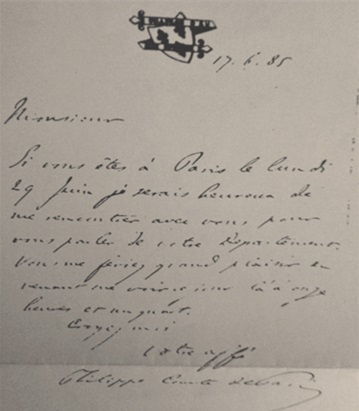 17. 6. 85
Monsieur
Si vous êtes à Paris le lundi
29 Juin je serais heureux de
me rencontrer avec vous pour
vous parler de votre Département
Vous me feriez grand plaisir en
venant me voir ce jour là à onze
heures et un quart.
Croyez moi
Votre aff
Philippe Comte de Paris